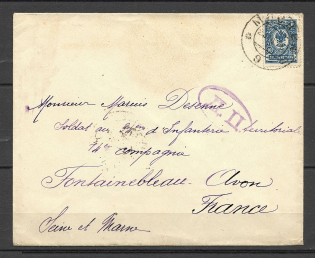 Monsieur Marcus Desenne
Soldat au d'Infanterie territoriale
Compagnie
Fontainebleau. Avon
France
Seine et Marne